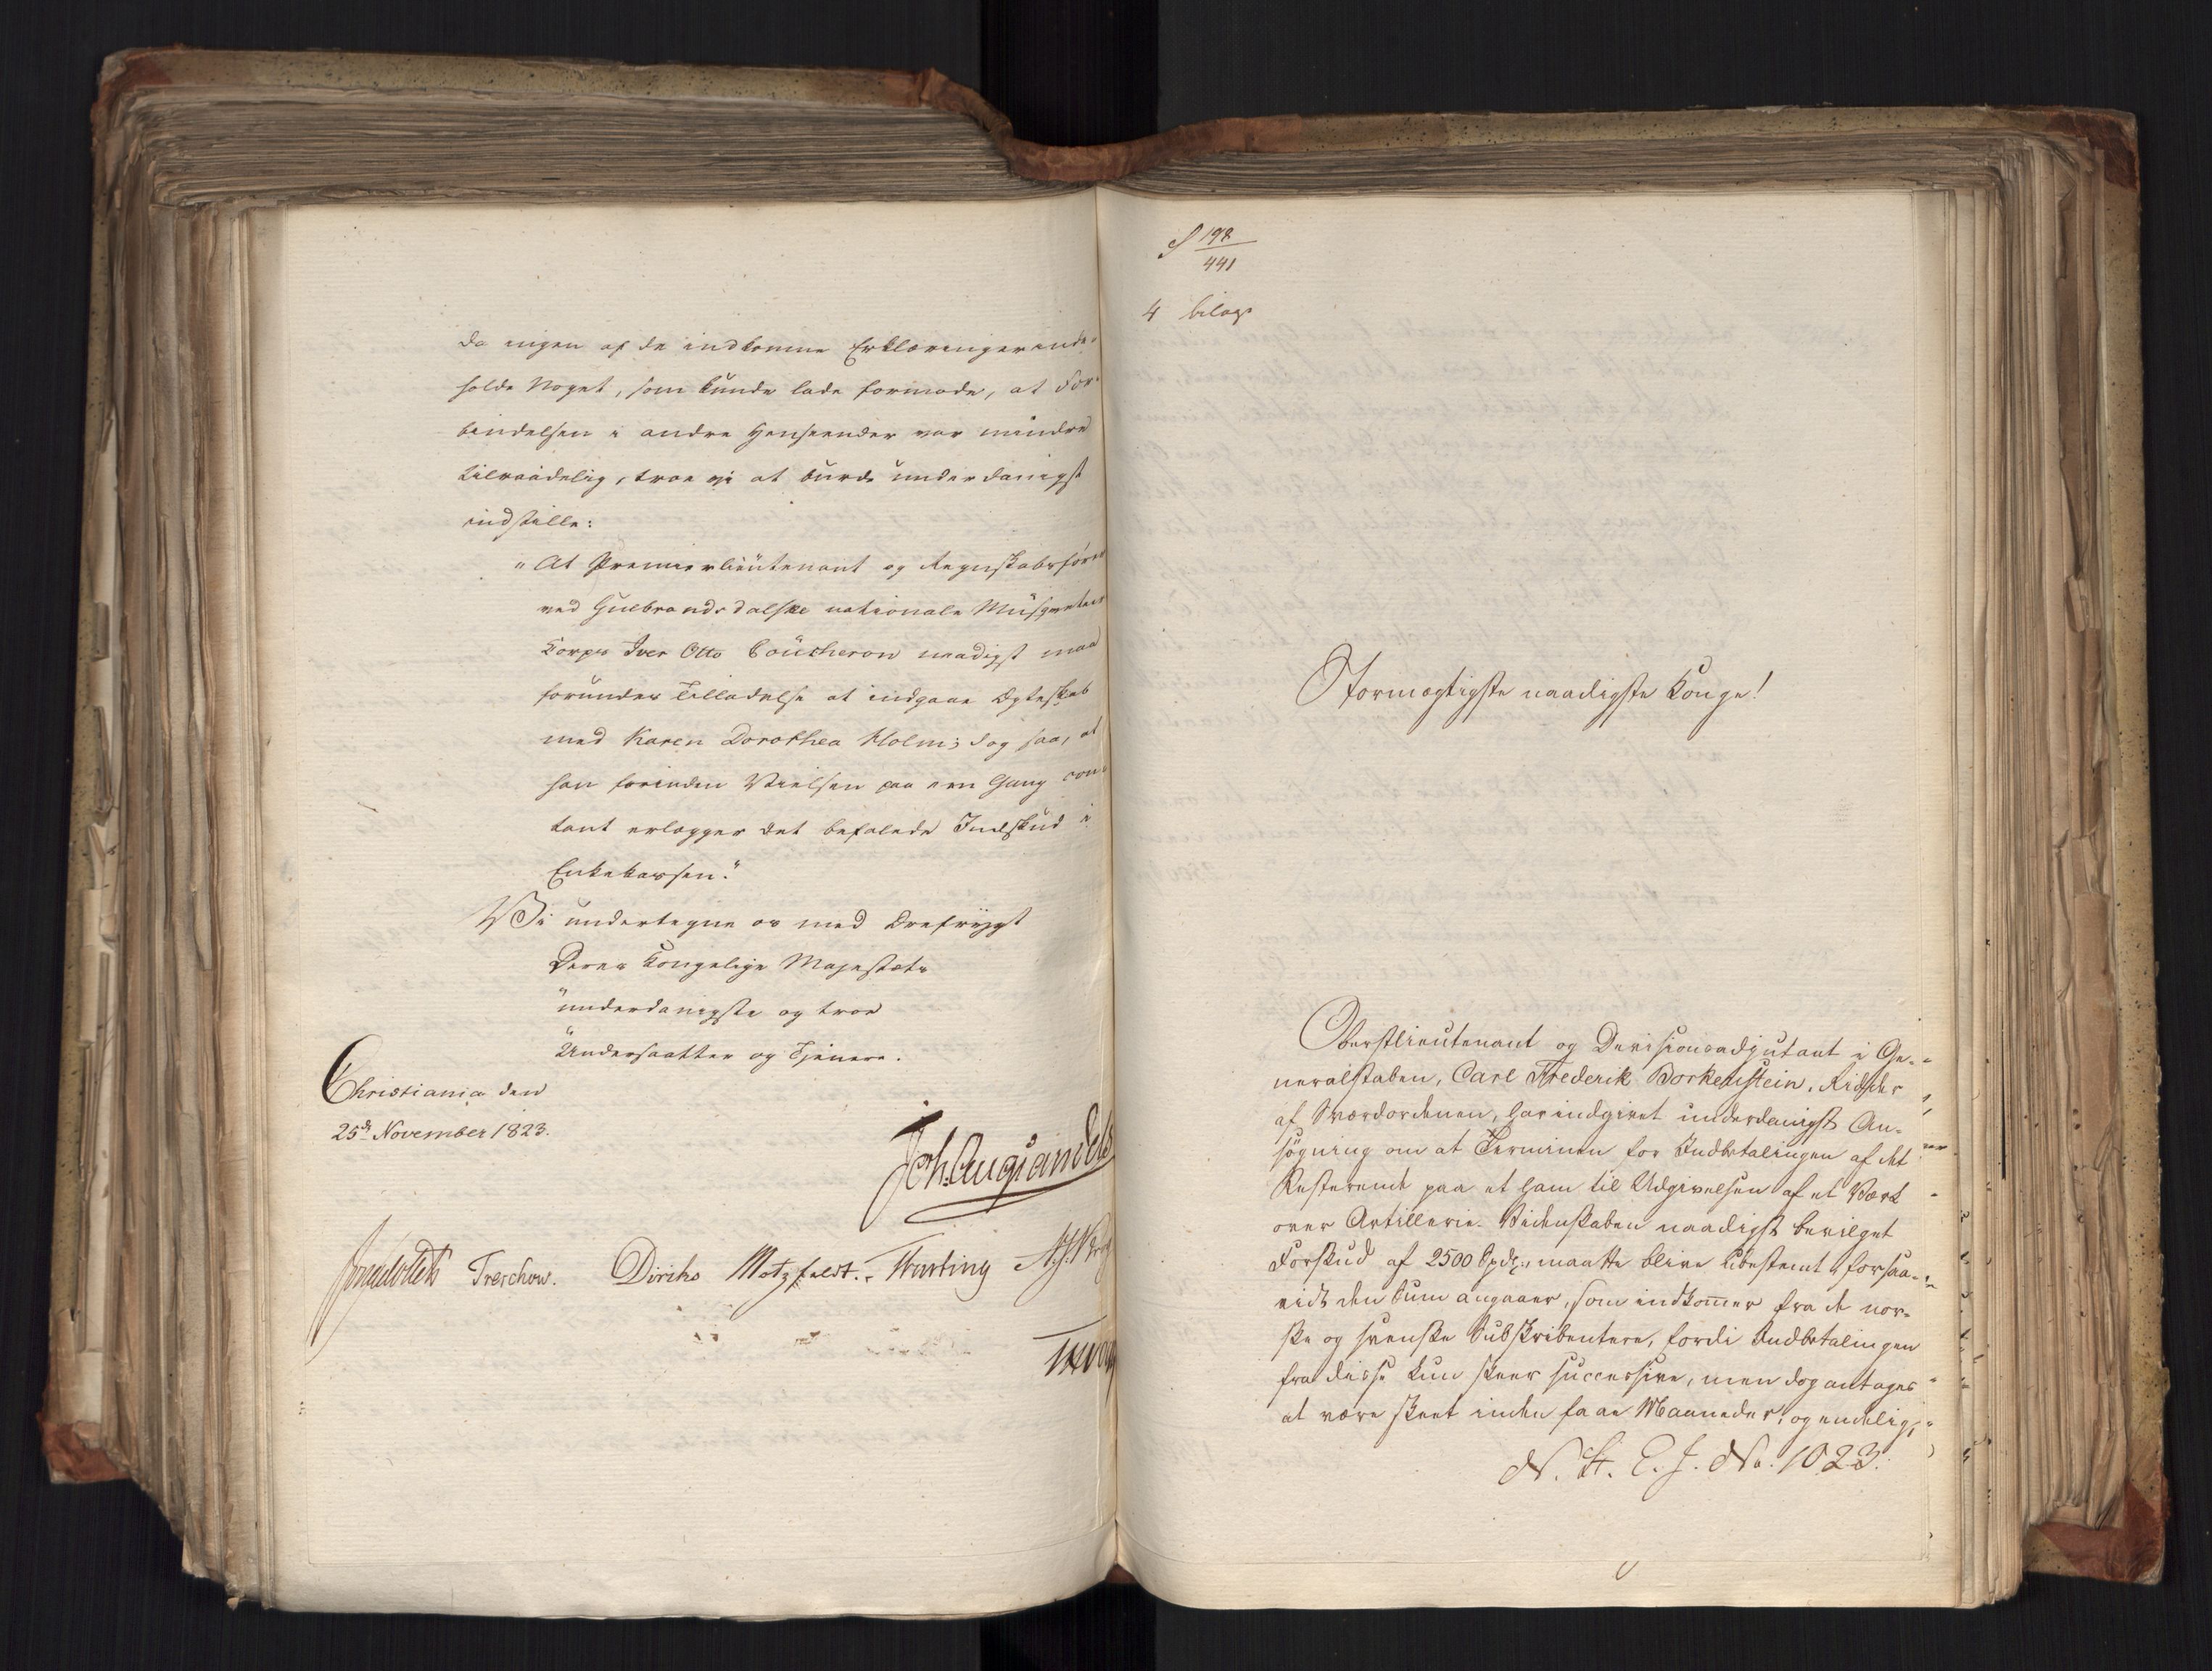 da ingen af de indkomne Erklæringer inde-
holde Noget, som kunde lade formode, at For-
bindelsen i andre Henseender var mindre
tilraadelig, troe vi at burde underdanigst
indstille:
"At Premierlieutenant og Regnskabsfører
ved Gulbrandsdalske nationale Musqueteer
Korps Iver Otto Coucheron naadigst maa
forundes Tilladelse at indgaae Ægteskab
med Karen Dorothea Holm; dog saa, at
han forinden Vielsen paa een Gang con-
tant erlægger det befalede Indskud i
Enkekassen."
Vi undertegne os med Ærefrygt
Deres Kongelige Majestæts
underdanigste og troe
Undersaatter og Tjenere.
Christiania den
25d November 1823.
Joh. Aug. Sandels
Sommerhielm Treschow. Diriks Motzfeldt. Fasting
S 198
441
4 bilage
Stormægtigste naadigste Konge!
Oberstlieutenant og Divisionsadjutant i Ge-
neralstaben, Carl Frederik Borkenstein, Ridder
af Sværdordenen, har indgivet underdanigst An-
søgning om at Terminen for Indbetalingen af det
Resterende paa et ham til Udgivelsen af et Værk
over Artillerie-Videnskaben naadigst bevilget
Forskud af 2500 Spdlr, maatte blive ubestemt, forsaa-
vidt den Sum angaaer, som indkommer fra de nor-
ske og svenske Subskribentere, fordi Indbetalingen
fra disse kun skeer successive, men dog antages
at være skeet inden faae Maaneder, og endelig,
N. St. E. J. No. 1023.